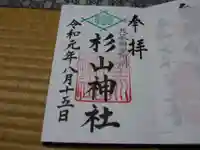 奉拝
杉山神社
令和元年八月十五日